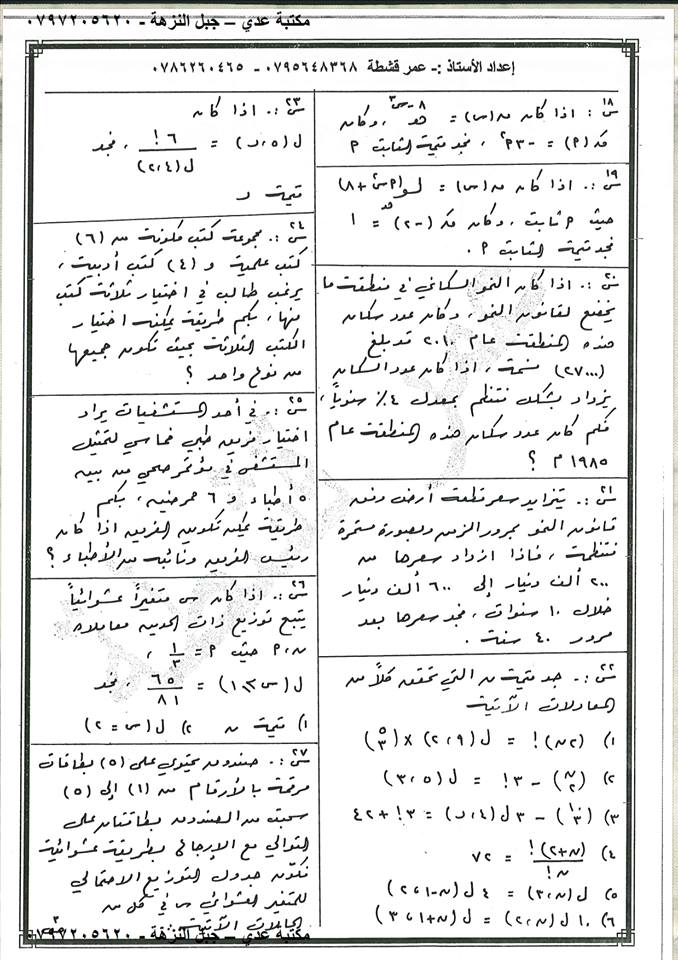 مكتبة عدي – جبل النزهة - ٠٧٩٧٢٠٥٦٢٠
إعداد الأستاذ :- عمر قشطة ٠٧٩٥٦٤٨٣٦٨ - ٠٧٨٦٢٦٠٤٦٥
س١٨: اذا كان ق(س) = هـ^(٨-س٣) وكان
قَ(٢) = -٣م٢ ، نجد قيمة الثابت م
س١٩: اذا كان ق(س) = لو هـ (م س٢ + ٨)
حيث م ثابت ، وكان قَ(-٢) = ١
نجد قيمة الثابت م .
س٢٠: اذا كان النمو السكاني في منطقة ما
يخضع لقانون النمو ، وكان عدد سكان
هذه المنطقة عام ٢٠١٠ قد بلغ
(٢٧٠٠٠) نسمة ، اذا كان عدد السكان
يزداد بشكل منتظم بمعدل ٤٪ سنوياً ،
فكم كان عدد سكان هذه المنطقة عام
١٩٨٥ م ؟
س٢١: يتزايد سعر قطعة أرض وفق
قانون النمو بمرور الزمن وبصورة مستمرة
منتظمة ، فاذا ازداد سعرها من
٢٠٠ ألف دينار إلى ٦٠٠ ألف دينار
خلال ١٠ سنوات ، نجد سعرها بعد
مرور ٤٠ سنة .
س٢٢: جد قيمة ن التي تحقق كلاً من
المعادلات الآتية
١) (٢ن)! = ل(٢،٩) × (٥ ٣)
٢) (ن ٢) - ٣! = ل(٣،٥)
٣) (١٠ ٣) - ٣ل(٤،ر) = ٣! + ٤٢
٤) (ن+٢)! / ن! = ٧٢
٥) ل(ن،٣) = ٤ ل(ن-١،٢)
٦) ١٠ ل(ن،٢) = ل(ن+١،٣)
س٢٣: اذا كان
ل(٥،ر) = ٦! / ل(٢،٤) ، نجد
قيمة ر
س٢٤: مجموعة كتب مكونة من (٦)
كتب علمية و (٤) كتب أدبية ،
يرغب طالب في اختيار ثلاثة كتب
منها ، بكم طريقة يمكنه اختيار
الكتب الثلاثة بحيث تكون جميعها
من نوع واحد ؟
س٢٥: في أحد المستشفيات يراد
اختيار فريق طبي خماسي لتمثيل
المستشفى في مؤتمر صحي من بين
٥ أطباء و ٦ ممرضين ، بكم
طريقة يمكن تكوين الفريق اذا كان
رئيس الفريق ونائبه من الأطباء ؟
س٢٦: اذا كان س متغيراً عشوائياً
يتبع توزيع ذات الحدين معاملاه
ن،م حيث م = ١/٣ ،
ل(س≥١) = ٦٥/٨١ ، نجد
١) قيمة ن ٢) ل(س=٢)
س٢٧: صندوق يحتوي على (٥) بطاقات
مرقمة بالأرقام من (١) إلى (٥)
سحبت من الصندوق بطاقتان على
التوالي مع الإرجاع بطريقة عشوائية
نكوّن جدول التوزيع الاحتمالي
للمتغير العشوائي س في كل من
الحالات الآتية
مكتبة عدي – جبل النزهة - ٠٧٩٧٢٠٥٦٢٠